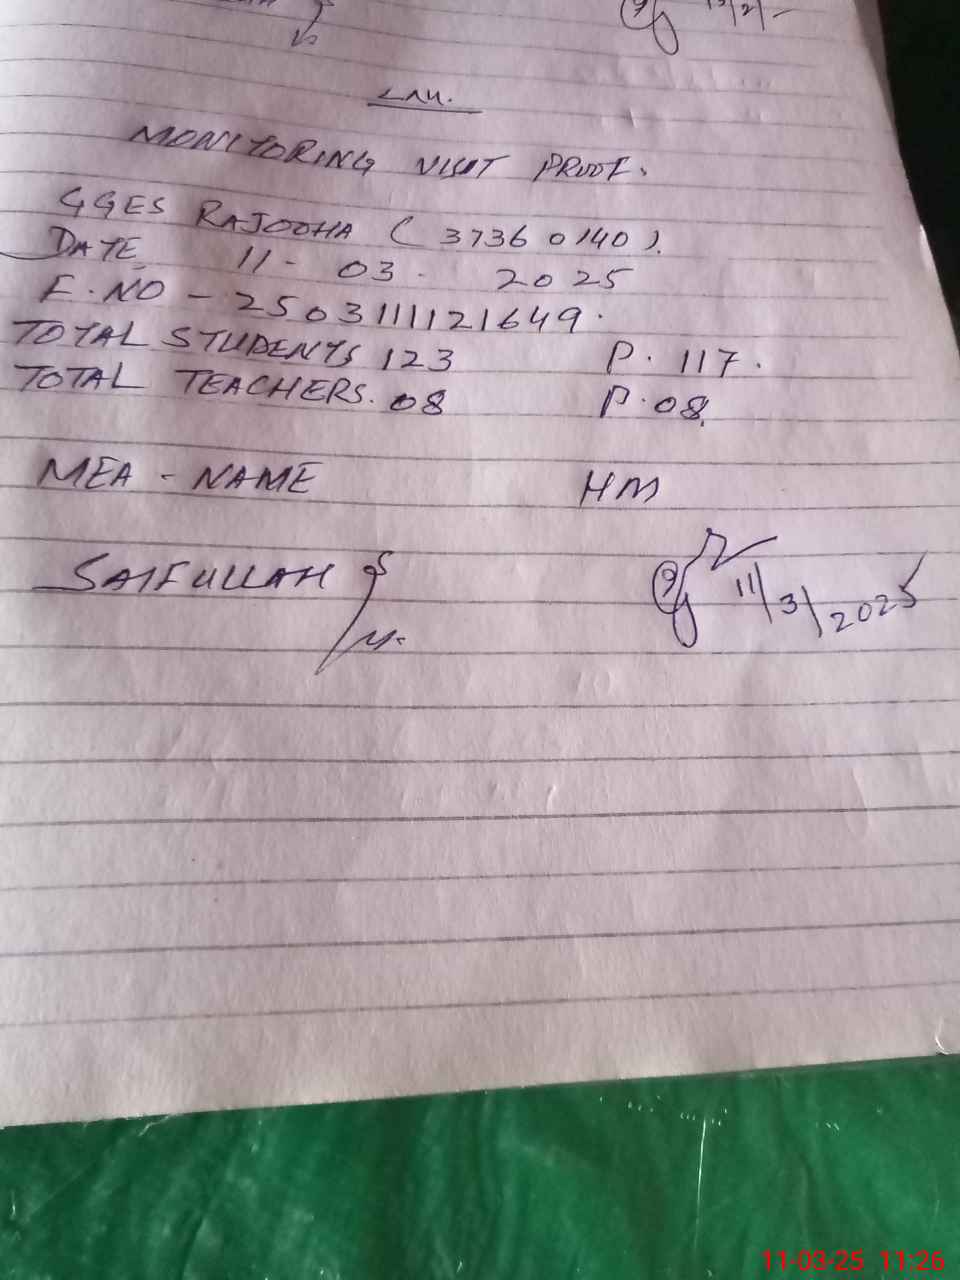 MONITORING VISIT PROOF.
GGES RAJODHA (37360140).
DATE 11- 03- 2025
E.NO - 2503111121649.
TOTAL STUDENTS 123 P. 117.
TOTAL TEACHERS. 08 P. 08.
MEA - NAME HM
SAIFULLAH
11/3/2025
11-03-25 11:26